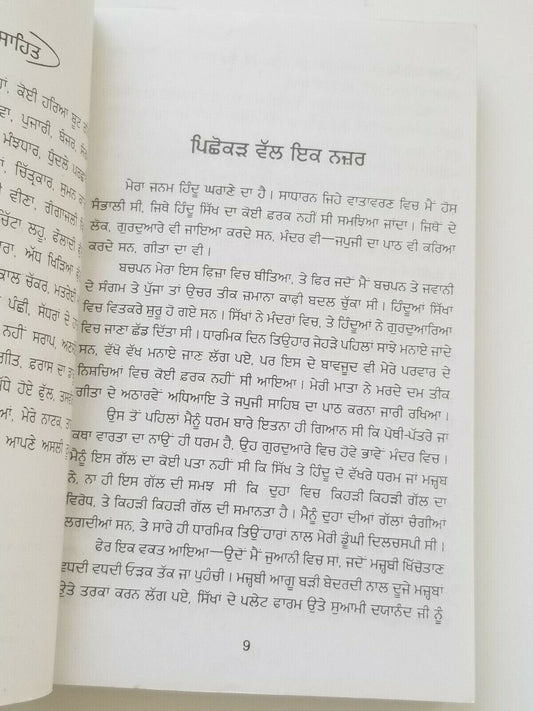 ਸਾਹਿਤ
ਹਾਂ, ਕੋਈ ਹਰਿਆ ਬੂਟ
ਪੁਜਾਰੀ, ਬੰਜਰ,
ਮੰਝਧਾਰ, ਧੁੰਦਲੇ
ਚਿੱਤ੍ਰਕਾਰ, ਸੁਮਨ
ਵੀਣਾ, ਗੰਗਾਜਲੀ
ਚਿੱਟਾ ਲਹੂ, ਫੌਲਾਦੀ
ਅੱਧ ਖਿੜਿਆ
ਕਾਲ ਚੱਕਰ, ਮਤਰੇਈ
ਪੰਛੀ, ਸੱਧਰਾਂ ਦੇ
ਨਹੀਂ ਸਰਾਪ,
ਫਰਾਸ ਦਾ
ਹੋਏ ਫੁੱਲ,
ਮੇਰੇ ਨਾਟਕ,
ਆਪਣੇ ਅਸਲੀ
ਪਿਛੋਕੜ ਵੱਲ ਇਕ ਨਜ਼ਰ
ਮੇਰਾ ਜਨਮ ਹਿੰਦੂ ਘਰਾਣੇ ਦਾ ਹੈ। ਸਾਧਾਰਨ ਜਿਹੇ ਵਾਤਾਵਰਣ ਵਿਚ ਮੈਂ ਹੋਸ਼
ਸੰਭਾਲੀ ਸੀ, ਜਿਥੇ ਹਿੰਦੂ ਸਿੱਖ ਦਾ ਕੋਈ ਫ਼ਰਕ ਨਹੀਂ ਸੀ ਸਮਝਿਆ ਜਾਂਦਾ। ਜਿਥੋਂ ਦੇ
ਲੋਕ, ਗੁਰਦੁਆਰੇ ਵੀ ਜਾਇਆ ਕਰਦੇ ਸਨ, ਮੰਦਰ ਵੀ—ਜਪੁਜੀ ਦਾ ਪਾਠ ਵੀ ਕਰਿਆ
ਕਰਦੇ ਸਨ, ਗੀਤਾ ਦਾ ਵੀ।
ਬਚਪਨ ਮੇਰਾ ਇਸ ਫਿਜ਼ਾ ਵਿਚ ਬੀਤਿਆ, ਤੇ ਫਿਰ ਜਦੋਂ ਮੈਂ ਬਚਪਨ ਤੇ ਜਵਾਨੀ
ਦੇ ਸੰਗਮ ਤੇ ਪੁੱਜਾ ਤਾਂ ਉਚਰ ਤੀਕ ਜ਼ਮਾਨਾ ਕਾਫ਼ੀ ਬਦਲ ਚੁੱਕਾ ਸੀ। ਹਿੰਦੂਆਂ ਸਿੱਖਾਂ
ਵਿਚ ਵਿਤਕਰੇ ਸ਼ੁਰੂ ਹੋ ਗਏ ਸਨ। ਸਿੱਖਾਂ ਨੇ ਮੰਦਰਾਂ ਵਿਚ, ਤੇ ਹਿੰਦੂਆਂ ਨੇ ਗੁਰਦੁਆਰਿਆਂ
ਵਿਚ ਜਾਣਾ ਛੱਡ ਦਿੱਤਾ ਸੀ। ਧਾਰਮਿਕ ਦਿਨ ਤਿਉਹਾਰ ਜੇਹੜੇ ਪਹਿਲਾਂ ਸਾਂਝੇ ਮਨਾਏ ਜਾਂਦੇ
ਸਨ, ਵੱਖੋ ਵੱਖ ਮਨਾਏ ਜਾਣ ਲੱਗ ਪਏ, ਪਰ ਇਸ ਦੇ ਬਾਵਜੂਦ ਵੀ ਮੇਰੇ ਪਰਵਾਰ ਦੇ
ਨਿਸਚਿਆਂ ਵਿਚ ਕੋਈ ਫਰਕ ਨਹੀਂ ਸੀ ਆਇਆ। ਮੇਰੀ ਮਾਤਾ ਨੇ ਮਰਦੇ ਦਮ ਤੀਕ
ਗੀਤਾ ਦੇ ਅਠਾਰਵੇਂ ਅਧਿਆਇ ਤੇ ਜਪੁਜੀ ਸਾਹਿਬ ਦਾ ਪਾਠ ਕਰਨਾ ਜਾਰੀ ਰਖਿਆ।
ਉਸ ਤੋਂ ਪਹਿਲਾਂ ਮੈਨੂੰ ਧਰਮ ਬਾਰੇ ਇਤਨਾ ਹੀ ਗਿਆਨ ਸੀ ਕਿ ਪੋਥੀ-ਪੱਤਰੇ ਜਾਂ
ਕਥਾ ਵਾਰਤਾ ਦਾ ਨਾਉਂ ਹੀ ਧਰਮ ਹੈ, ਉਹ ਗੁਰਦੁਆਰੇ ਵਿਚ ਹੋਵੇ ਭਾਵੇਂ ਮੰਦਰ ਵਿਚ।
ਮੈਨੂੰ ਇਸ ਗੱਲ ਦਾ ਕੋਈ ਪਤਾ ਨਹੀਂ ਸੀ ਕਿ ਸਿੱਖ ਤੇ ਹਿੰਦੂ ਦੋ ਵੱਖਰੇ ਧਰਮ ਜਾਂ ਮਜ਼੍ਹਬ
ਨੇ, ਨਾ ਹੀ ਇਸ ਗੱਲ ਦੀ ਸਮਝ ਸੀ ਕਿ ਦੁਹਾਂ ਵਿਚ ਕਿਹੜੀ ਕਿਹੜੀ ਗੱਲ ਦਾ
ਵਿਰੋਧ, ਤੇ ਕਿਹੜੀ ਕਿਹੜੀ ਗੱਲ ਦੀ ਸਮਾਨਤਾ ਹੈ। ਮੈਨੂੰ ਦੁਹਾਂ ਦੀਆਂ ਗੱਲਾਂ ਚੰਗੀਆਂ
ਲਗਦੀਆਂ ਸਨ, ਤੇ ਸਾਰੇ ਹੀ ਧਾਰਮਿਕ ਤਿਉਹਾਰਾਂ ਨਾਲ ਮੇਰੀ ਡੂੰਘੀ ਦਿਲਚਸਪੀ ਸੀ।
ਫੇਰ ਇਕ ਵਕਤ ਆਇਆ—ਉਦੋਂ ਮੈਂ ਜੁਆਨੀ ਵਿਚ ਸਾਂ, ਜਦੋਂ ਮਜ਼੍ਹਬੀ ਖਿੱਚੋਤਾਣ
ਵਧਦੀ ਵਧਦੀ ਓੜਕ ਤੱਕ ਜਾ ਪੁਹੰਚੀ। ਮਜ਼੍ਹਬੀ ਆਗੂ ਬੜੀ ਬੇਦਰਦੀ ਨਾਲ ਦੂਜੇ ਮਜ਼੍ਹਬਾਂ
ਉਤੇ ਤਰਕਾਂ ਕਰਨ ਲੱਗ ਪਏ, ਸਿੱਖਾਂ ਦੇ ਪਲੇਟ ਫਾਰਮ ਉਤੇ ਸੁਆਮੀ ਦਯਾਨੰਦ ਜੀ ਨੂੰ
9